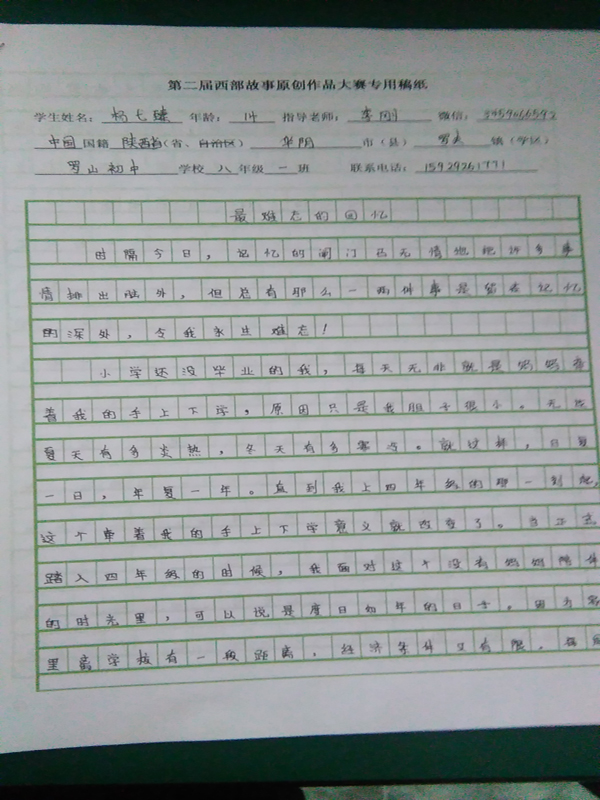 第二届西部故事原创作品大赛专用稿纸
学生姓名： 年龄：14 指导老师：李刚 微信：
中国 国籍 陕西省（省、自治区） 华阴 市（县） 罗夫 镇（学区）
罗山初中 学校 八 年级 一 班 联系电话：15929261771
最难忘的回忆
时隔今日，记忆的闸门已无情地把许多事
情排出脑外，但总有那么一两件事是留在记忆
的深处，令我永生难忘！
小学还没毕业的我，每天无非就是妈妈牵
着我的手上下学，原因只是我胆子很小。无论
夏天有多炎热，冬天有多寒冷。就这样，日复
一日，年复一年。直到我上四年级的那一刻起，
这个牵着我的手上下学意义就改变了。当正式
踏入四年级的时候，我面对这个没有妈妈陪伴
的时光里，可以说是度日如年的日子。因为家
里离学校有一段距离，经济条件又有限，每